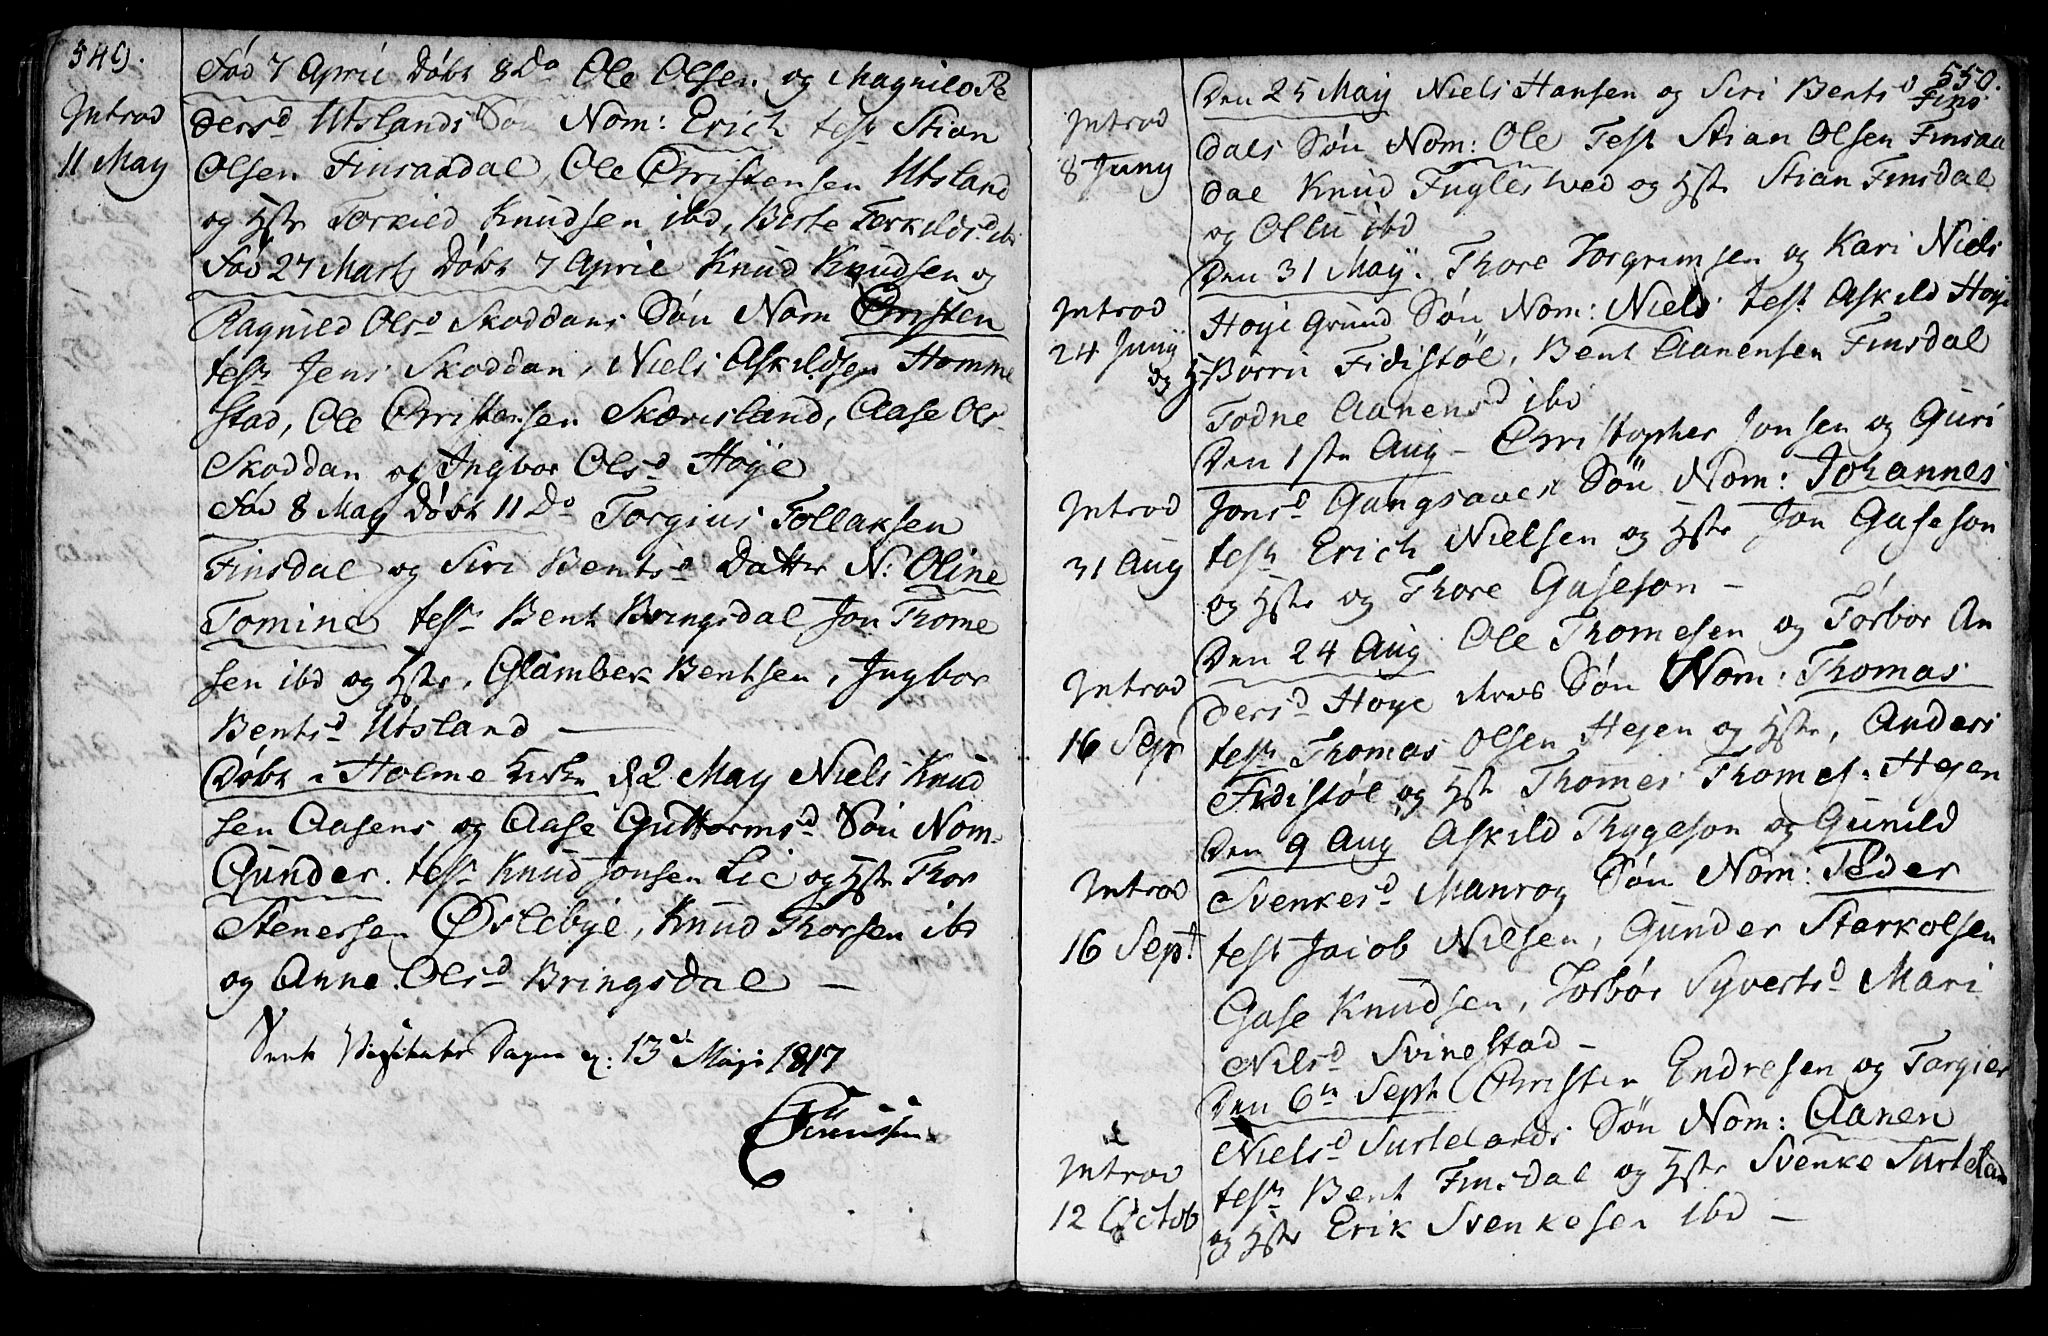 549.
Introd
11 May
Fød 7 April Døbt 8 Do Ole Olsen og Magnild Pe
dersd Utslands Søn Nom: Erich test Stian
Olsen Finsaadal, Ole Christensen Utsland
og Hstr Terkild Knudsen ibd, Berte Terkildsd ib
Fød 27 Marts Døbt 7 April Knud Knudsen og
Ragnild Olsd Skoddans Søn Nom Christen
test Jens Skoddan, Niels Askildsen Homme
stad, Ole Christensen Skærisland, Aase Ols
Skoddan og Ingbor Olsd Høye
Fød 8 May Døbt 11 Do Torgius Tollaksen
Finsdal og Siri Bentsd Datter N: Oline
Tomine test Bent Bringsdal Jon Thome
sen ibd og Hstr, Glambek Bentsen, Ingbor
Bentsd Utsland —
Døbt i Holme Kirke d 2 May Niels Knud
sen Aasens og Aase Guttormsd Søn Nom.
Gunder. test Knud Jonsen Lie og Hstr Thor
Stenersen Øslebye, Knud Thorsen ibd
og Anne Olsd Bringsdal —
Visitats Dagen d: 13 Maji 1817
550.
Introd
8 Juny
Den 25 May Niels Hansen og Siri Bentsd Fins
dals Søn Nom: Ole Test Stian Olsen Finsaa
dal Knud Fugleshved og Hstr Stian Finsdal
og Ollu ibd
Introd
24 Juny
Den 31 May. Thore Torgrimsen og Kari Niels
Høye Grund Søn Nom: Niels test Askild Høye
og Hstr Børru Fidistøl, Bent Aanensen Finsdal
Todne Aanensd ibd
Introd
31 Aug
Den 1ste Aug — Christopher Jonsen og Guri
Jonsd Gangsaaes Søn Nom: Johannes
test Erich Nielsen og Hstr Jon Gaseson
og Hstr og Thore Gaseson —
Introd
16 Sept
Den 24 Aug Ole Thomesen og Torbor An
dersd Høye Søn Nom: Thomas
test Thomas Olsen Hejen og Hstr, Anders
Fidistøl og Hstr Thomes Thomes: Hejen
Introd
16 Sept
Den 9 Aug Askild Thygeson og Gunild
Svenkesd Manrog Søn Nom: Peder
test Jacob Nilsen, Gunder Sterkolsen
Gase Knudsen, Torbor Syvertsd Mari
Nilsd Svinestad —
Introd
12 Octob
Den 6te Sept Christen Endresen og Torgier
Nielsd Surtelands Søn Nom: Aanen
test Bent Finsdal og Hstr Svenke Surtelan
og Hstr Erik Svenkesen ibd —